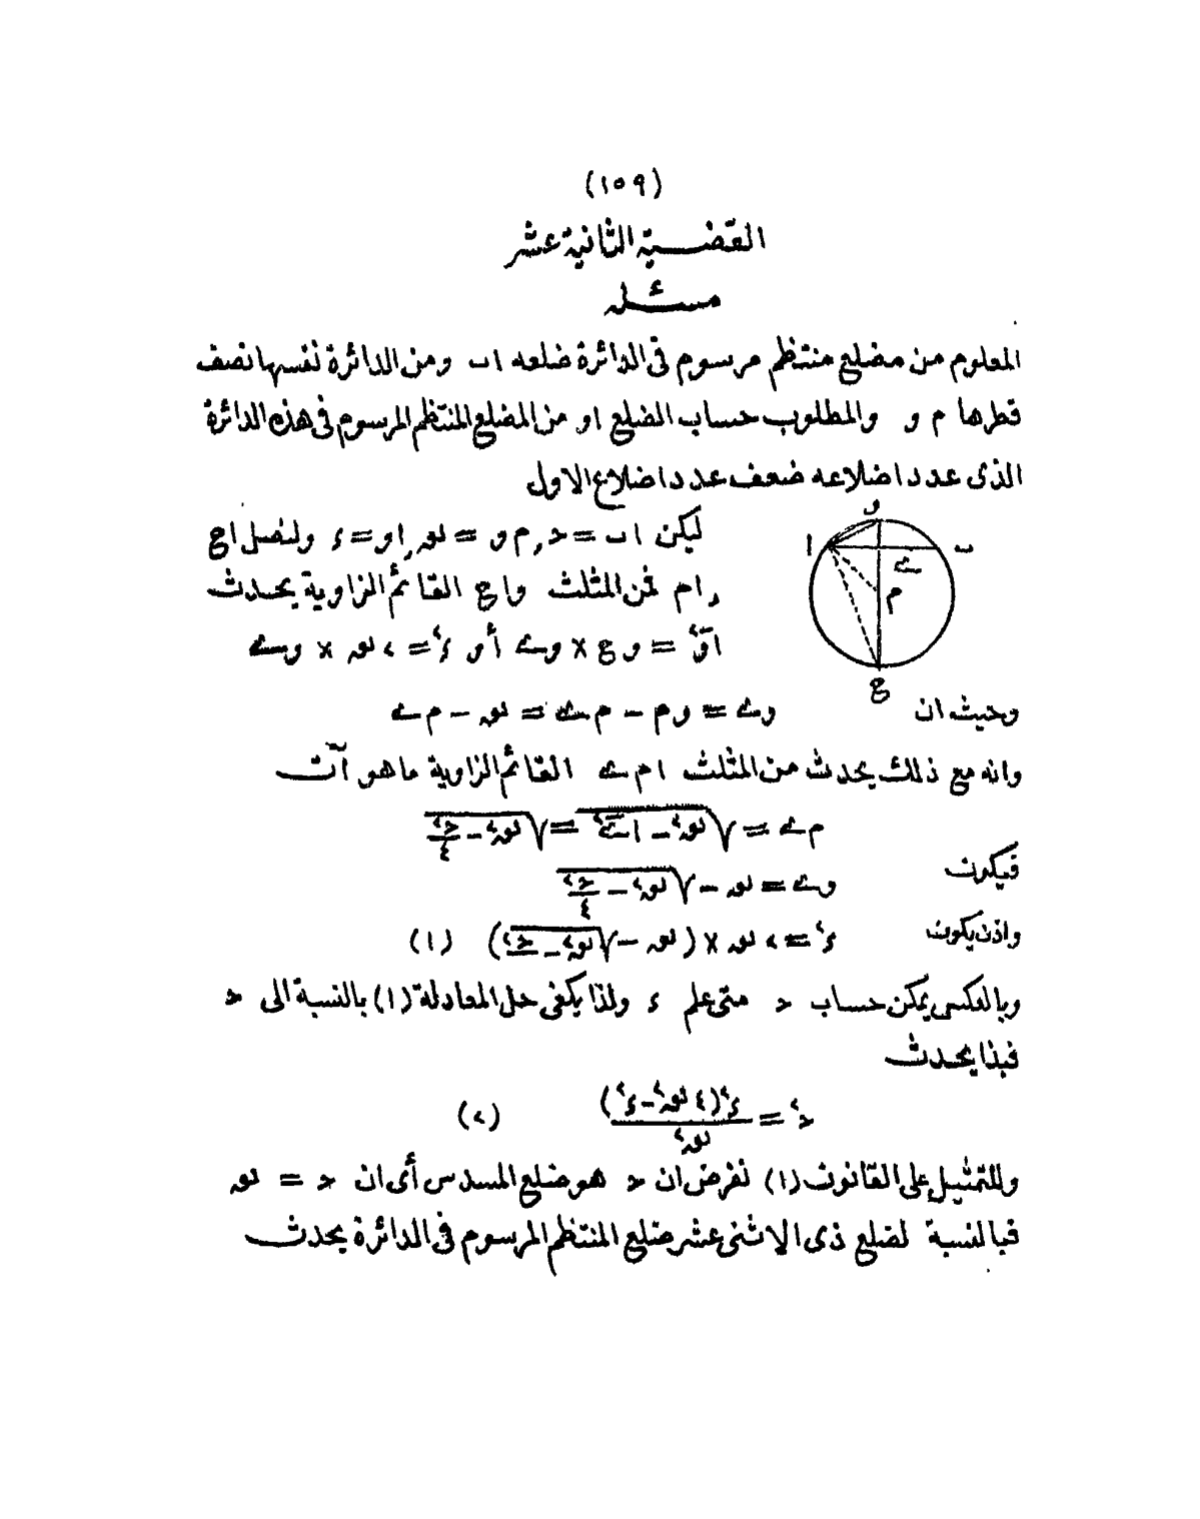 (١٥٩)
القضية الثانية عشر
مسئله
المعلوم من مضلع منتظم مرسوم فى الدائرة ضلعه اب ومن الدائرة نفسها نصف
قطرها م و والمطلوب حساب الضلع او من المضلع المنتظم المرسوم فى هذه الدائرة
الذى عدد اضلاعه ضعف عدد اضلاع الاول
ليكن اب = ح , م و = نق , او = ء ولنصل اع
, ام فمن المثلث واع القائم الزاوية يحدث
او٢ = وع × وى أو ء٢ = ٢ نق × وى
وحيث ان وى = وم − مى = نق − مى
وانه مع ذلك يحدث من المثلث امى القائم الزاوية ما هو آت
مى = √(نق٢ − اى٢) = √(نق٢ − ح٢/٤)
فيكون وى = نق − √(نق٢ − ح٢/٤)
واذن يكون ء٢ = ٢ نق × (نق − √(نق٢ − ح٢)) (١)
وبالعكس يمكن حساب ح متى علم ء ولذا يكفى حل المعادلة (١) بالنسبة الى ح
فبذا يحدث
ح٢ = ء٢(٤ نق٢ − ء٢)/نق٢ (٢)
وللتمثيل على القانون (١) نفرض ان ح هو ضلع المسدس أى ان ح = نق
فبالنسبة لضلع ذى الاثنى عشر ضلع المنتظم المرسوم فى الدائرة يحدث
و
ا
ب
ى
م
ع